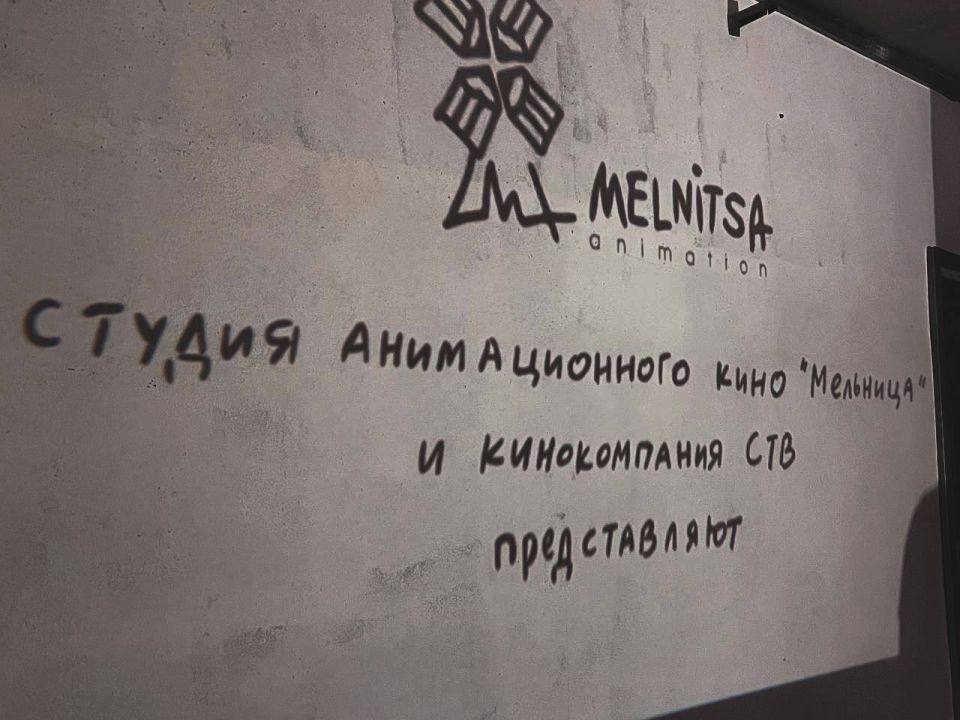 MELNITSA
animation
СТУДИЯ АНИМАЦИОННОГО КИНО "Мельница"
И КИНОКОМПАНИЯ СТВ
ПРЕДСТАВЛЯЮТ